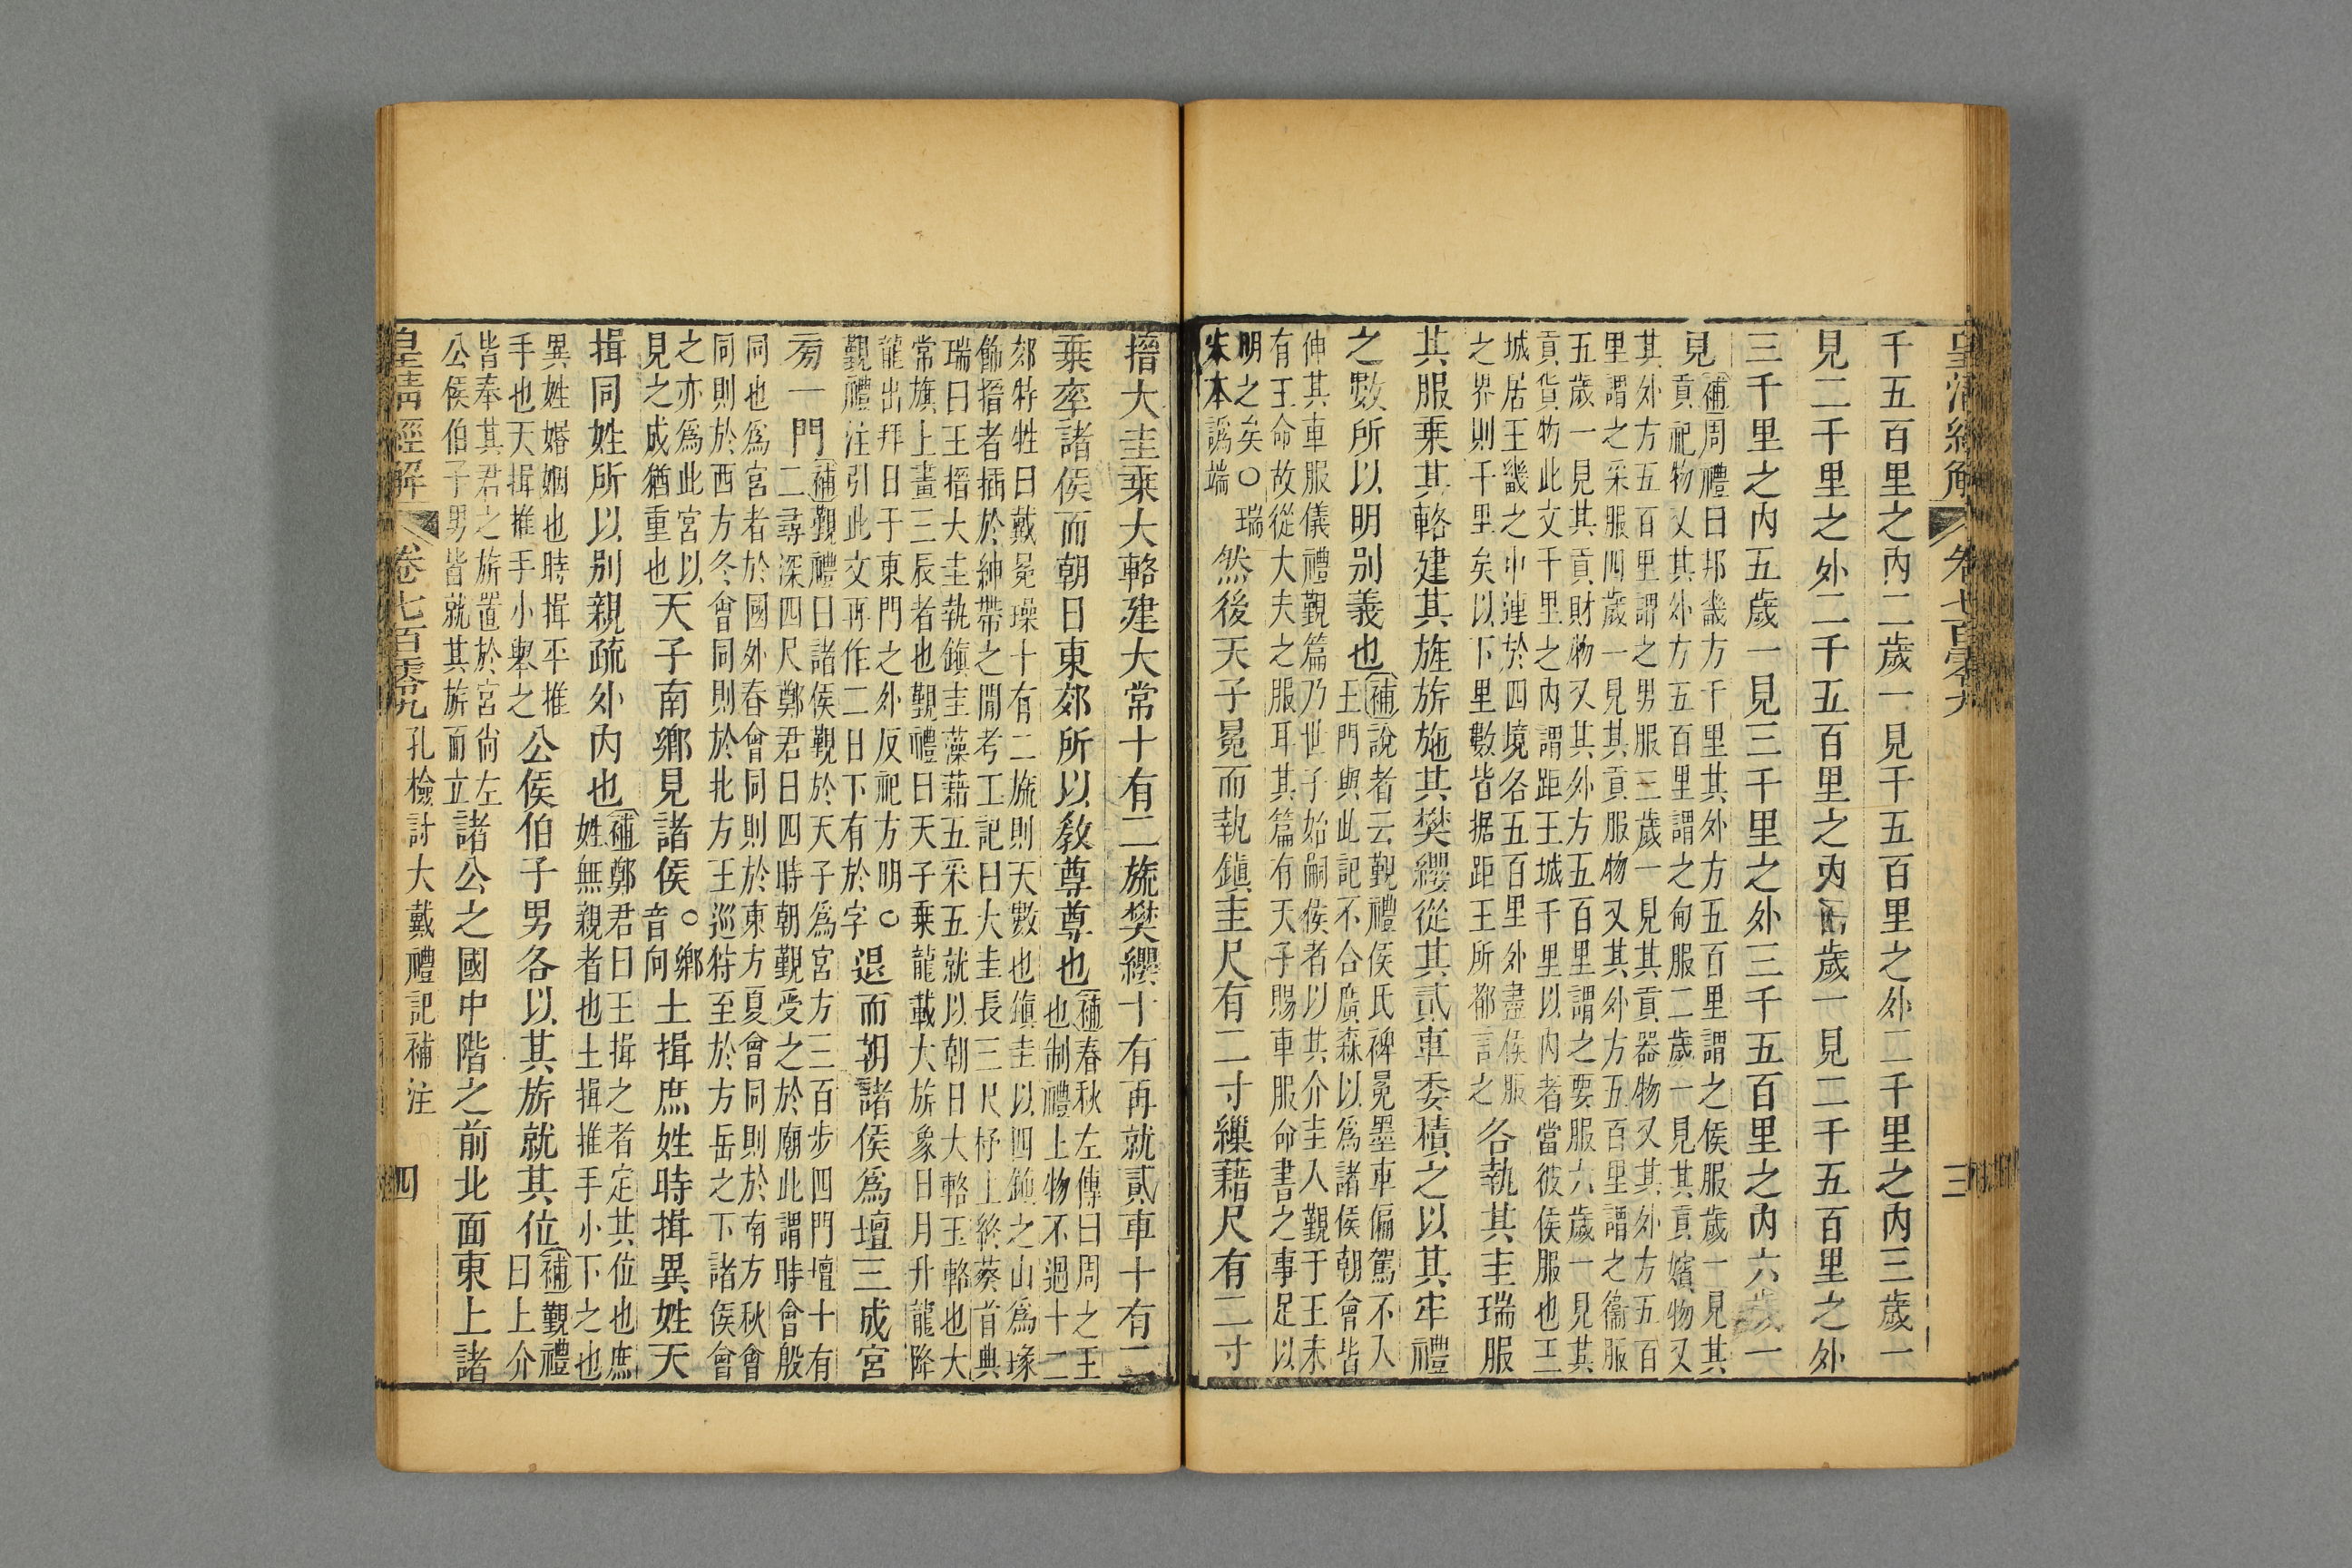 皇清經解 卷七百零九 三
千五百里之內二歲一見千五百里之外二千里之內三歲一
見二千里之外二千五百里之內歲一見二千五百里之外
三千里之內五歲一見三千里之外三千五百里之內六歲一
見補周禮曰邦畿方千里其外方五百里謂之侯服歲一見其
貢祀物又其外方五百里謂之甸服二歲一見其貢嬪物又
其外方五百里謂之男服三歲一見其貢器物又其外方五百
里謂之采服四歲一見其貢服物又其外方五百里謂之衞服
五歲一見其貢財物又其外方五百里謂之要服六歲一見其
貢貨物此文千里之內謂距王城千里以內者當彼侯服也王
城居王畿之中連於四境各五百里外盡侯服
之界則千里矣以下里數皆据距王所都言之
各執其圭瑞服
其服乗其輅建其旌旂施其樊纓從其貳車委積之以其牢禮
之數所以明別義也
補說者云覲禮侯氏裨冕墨車偏駕不入
王門與此記不合廣森以爲諸侯朝會皆
伸其車服儀禮覲篇乃世子始嗣侯者以其介圭入覲于王未
有王命故從大夫之服耳其篇有天子賜車服命書之事足以
明之矣○瑞
朱本譌端
然後天子冕而執鎮圭尺有二寸繅藉尺有二寸
搢大圭乗大輅建大常十有二旒樊纓十有再就貳車十有二
乗率諸侯而朝日東郊所以敎尊尊也
補春秋左傳曰周之王
也制禮上物不過十二
郊特牲曰戴冕璪十有二旒則天數也鎮圭以四鎮之山爲瑑
飾搢者插於紳帶之閒考工記曰大圭長三尺杼上終葵首典
瑞曰王搢大圭執鎮圭藻藉五采五就以朝日大輅玉輅也大
常旗上畫三辰者也覲禮曰天子乗龍載大旂象日月升龍降
龍出拜日于東門之外反祀方明○
覲禮注引此文再作二日下有於字
退而朝諸侯爲壇三成宮
旁一門
補覲禮曰諸侯覲於天子爲宮方三百步四門壇十有
二尋深四尺鄭君曰四時朝覲受之於廟此謂時會殷
同也爲宮者於國外春會同則於東方夏會同則於南方秋會
同則於西方冬會同則於北方王巡狩至於方岳之下諸侯會
之亦爲此宮以
見之成猶重也
天子南鄉見諸侯○鄉
音向
土揖庶姓時揖異姓天
揖同姓所以別親疏外內也
補鄭君曰王揖之者定其位也庶
姓無親者也土揖推手小下之也
異姓婚姻也時揖平推
手也天揖推手小舉之
公侯伯子男各以其旂就其位
補覲禮
曰上介
皆奉其君之旂置於宮尙左
公侯伯子男皆就其旂而立
諸公之國中階之前北面東上諸
皇清經解 卷七百零九 孔檢討大戴禮記補注 四